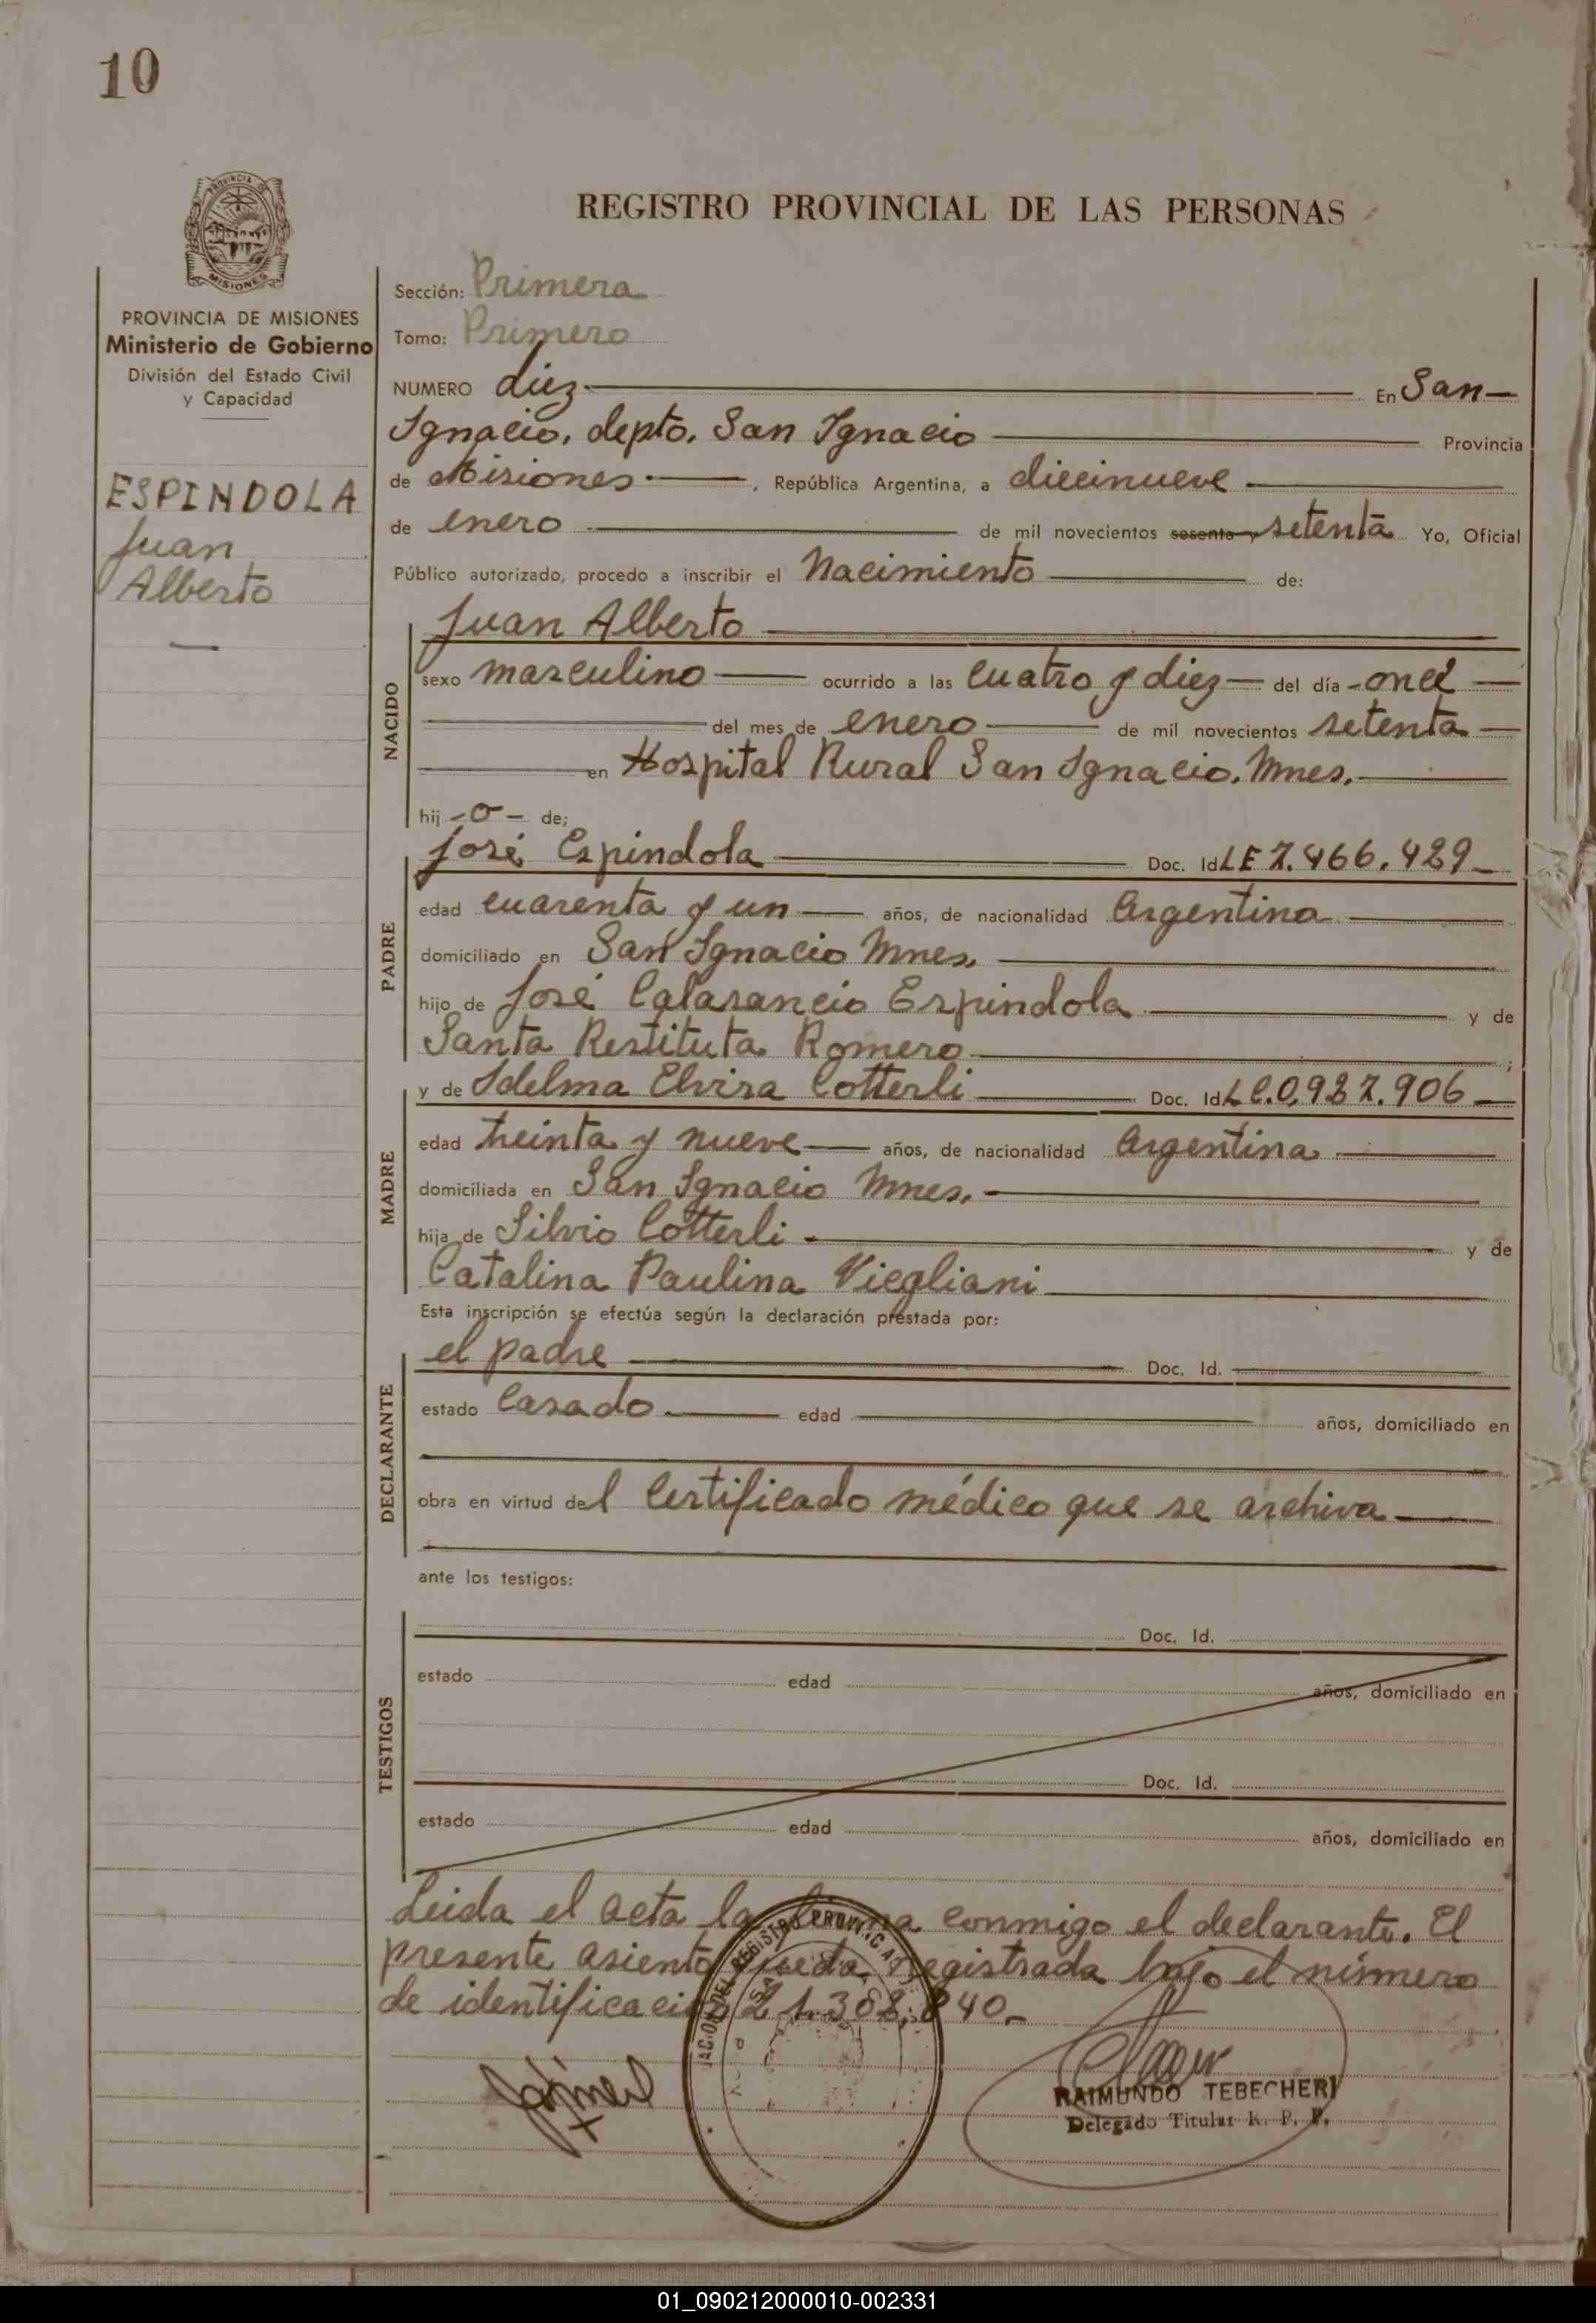 10
PROVINCIA DE
MISIONES
PROVINCIA DE MISIONES
Ministerio de Gobierno
División del Estado Civil
y Capacidad
ESPINDOLA
Juan
Alberto
REGISTRO PROVINCIAL DE LAS PERSONAS
Sección: Primera
Tomo: Primero
NUMERO diez En San
Ignacio, depto. San Ignacio Provincia
de Misiones, República Argentina, a diecinueve
de enero de mil novecientos sesenta y setenta Yo, Oficial
Público autorizado, procedo a inscribir el Nacimiento de:
NACIDO
Juan Alberto
sexo masculino ocurrido a las cuatro y diez del día once
del mes de enero de mil novecientos setenta
en Hospital Rural San Ignacio. Mnes.
hij -o- de;
PADRE
José Espindola Doc. Id. LE 7.466.429
edad cuarenta y un años, de nacionalidad Argentina
domiciliado en San Ignacio Mnes.
hijo de José Calasancio Espindola y de
Santa Restituta Romero ;
MADRE
y de Idelma Elvira Cotterli Doc. Id. LC.0.927.906
edad treinta y nueve años, de nacionalidad Argentina
domiciliada en San Ignacio Mnes.
hija de Silvio Cotterli y de
Catalina Paulina Viegliani
Esta inscripción se efectúa según la declaración prestada por:
DECLARANTE
el padre Doc. Id.
estado Casado edad años, domiciliado en
obra en virtud del Certificado médico que se archiva
ante los testigos:
TESTIGOS
Doc. Id.
estado edad años, domiciliado en
Doc. Id.
estado edad años, domiciliado en
Leida el acta la firma conmigo el declarante. El
presente asiento queda registrada bajo el número
de identificación 21.302.840.-
RAIMUNDO TEBECHERI
Delegado Titular R. P. P.
01_090212000010-002331